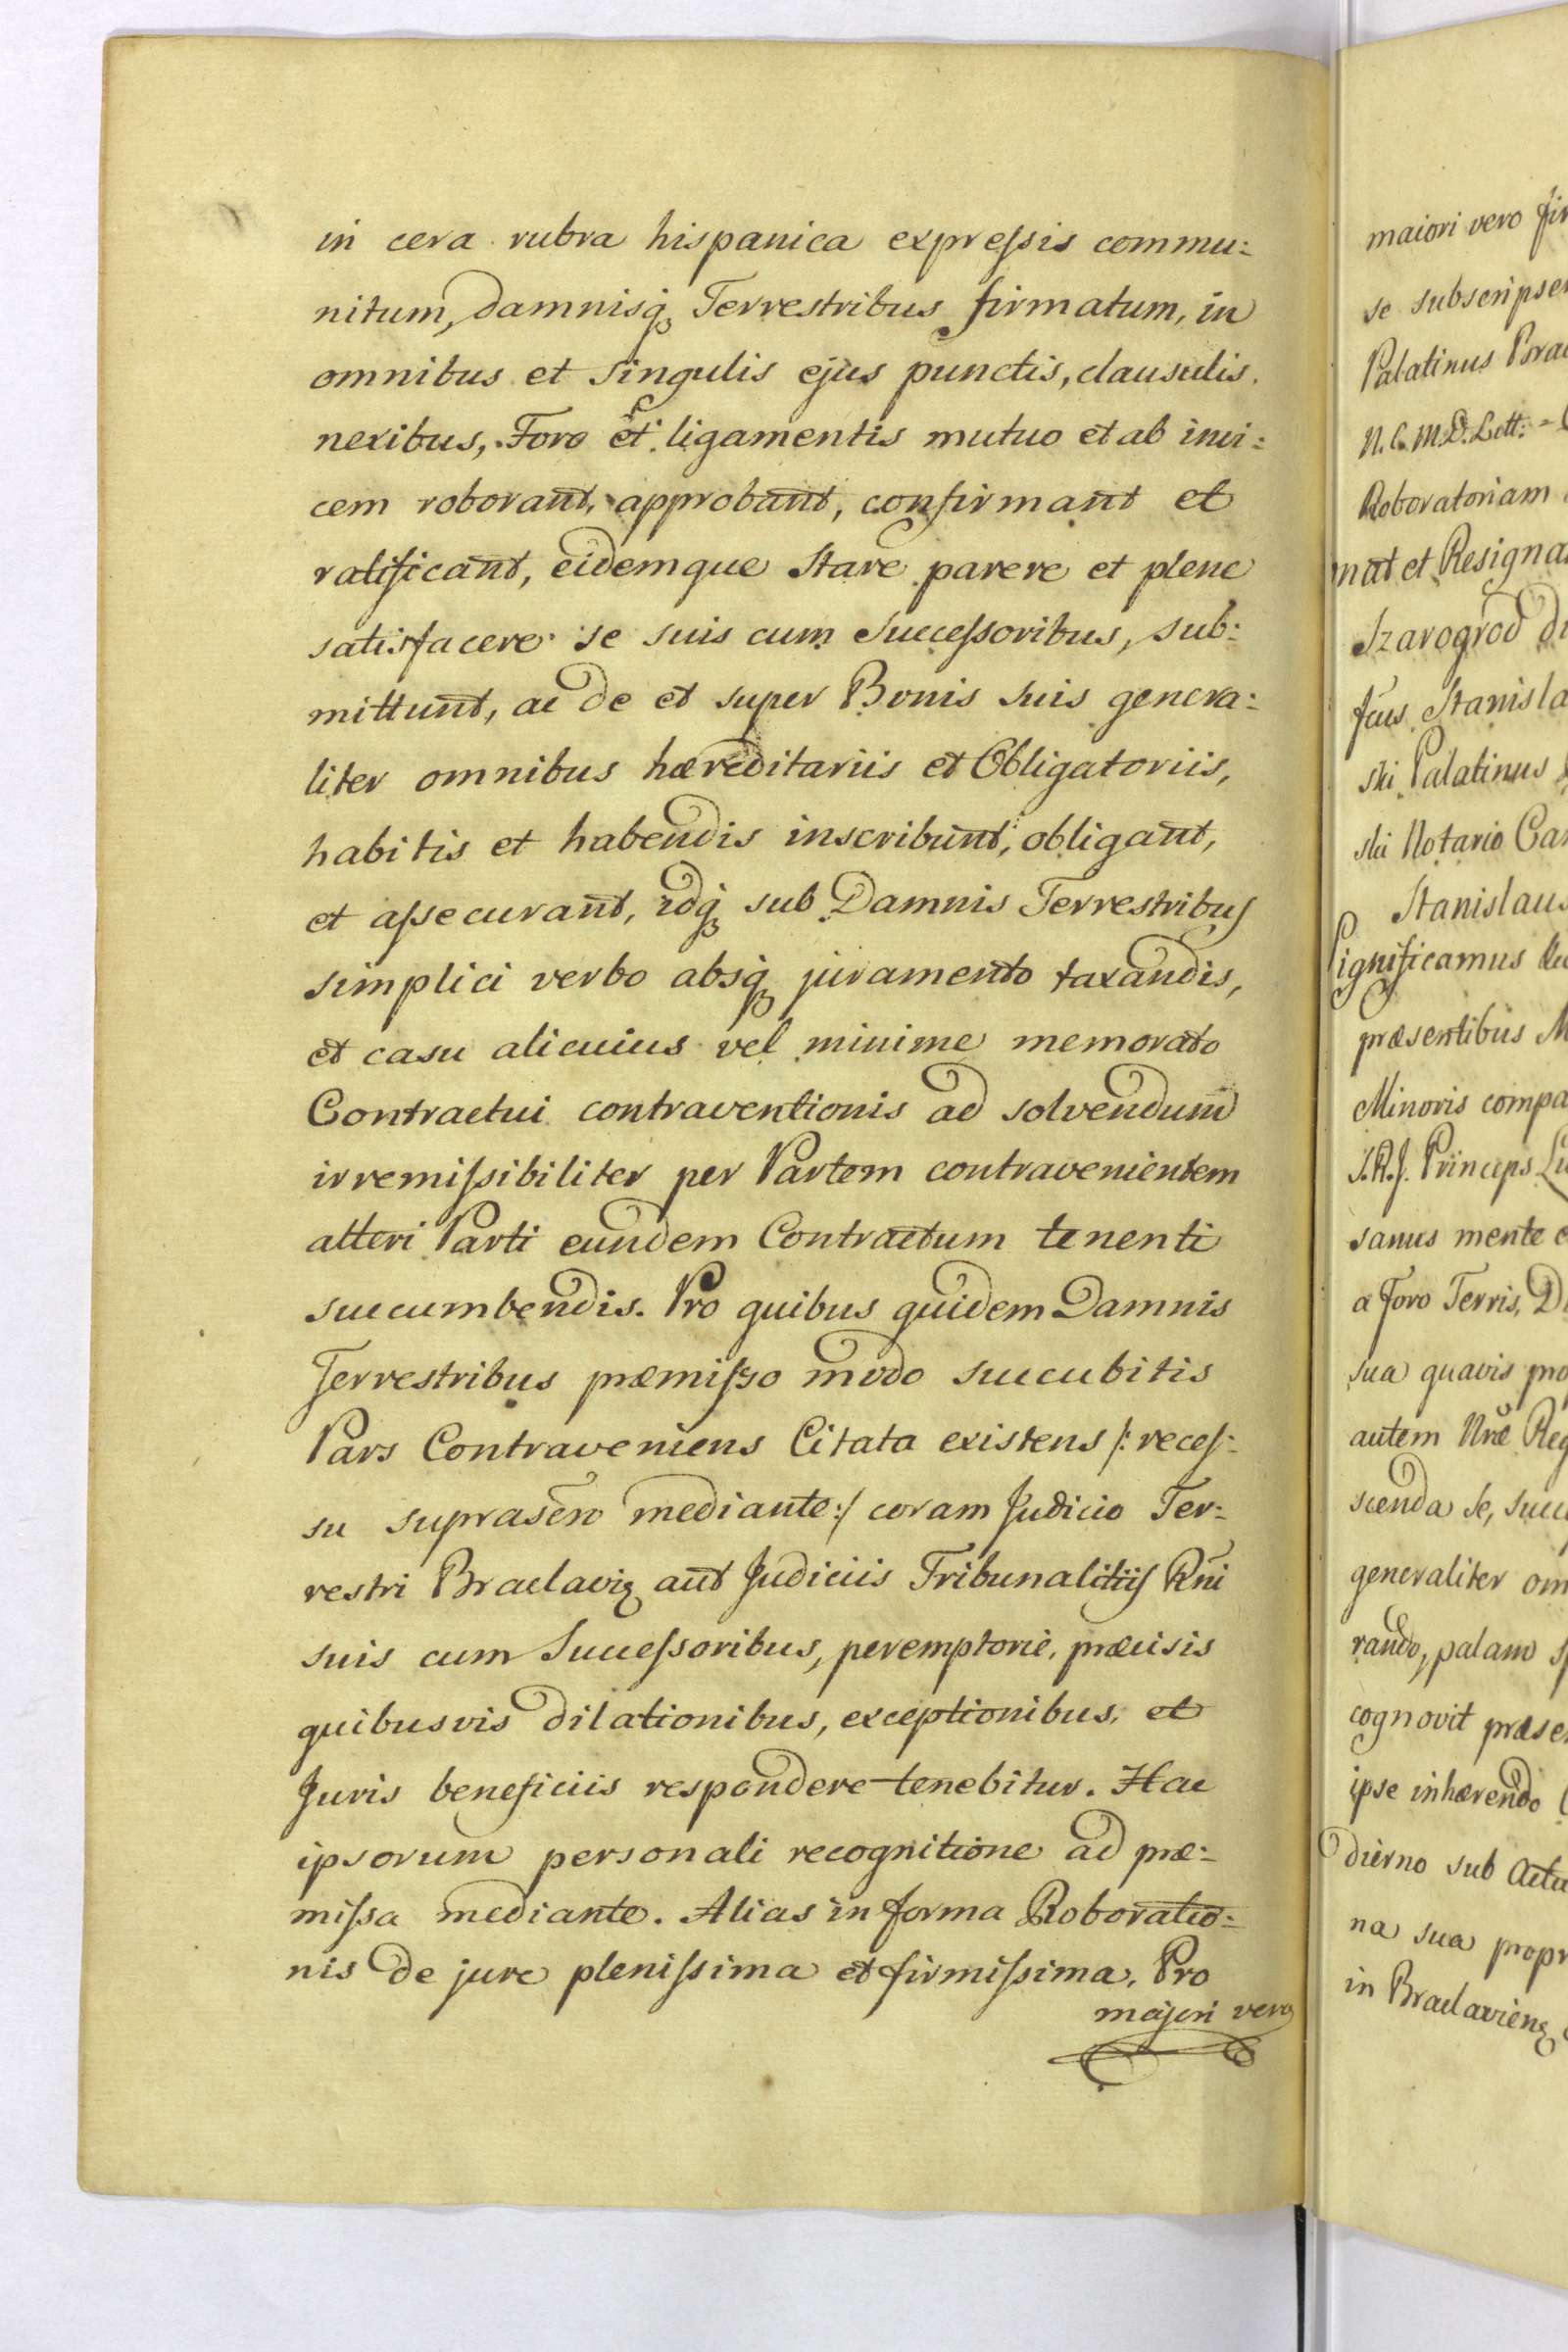 in cera rubra hispanica expreſsis commu:
nitum, damnisq; Terrestribus firmatum, in
omnibus et singulis ejus punctis, clausulis.
nexibus, Foro et ligamentis mutuo et ab invi:
cem roborant, approbant, confirmant et
ratificant, eidemque stare parere et plene
satisfacere se suis cum Succeſsoribus, sub:
mittunt, ac de et super Bonis suis genera:
liter omnibus hæreditariis et Obligatoriis,
habitis et habendis inscribunt, obligant,
et aſsecurant, idq; sub Damnis Terrestribus
simplici verbo absq; juramento taxandis,
et casu alicuius vel minime memorato
Contractui contraventionis ad solvendum
irremiſsibiliter per Partem contravenientem
alteri Parti eundem Contractum tenenti
succumbendis. Pro quibus quidem Damnis
Terrestribus præmiſso modo succubitis
Pars Contraveniens Citata existens /: receſ:
su suprascro mediante :/ coram Judicio Ter:
restri Braclavię aut Judiciis Tribunalitiis Rni
suis cum Succeſsoribus, peremptorie, præcisis
quibusvis dilationibus, exceptionibus, et
Juris beneficiis respondere tenebitur. Hac
ipsorum personali recognitione ad præ:
miſsa mediante. Alias in forma Roboratio:
nis de jure pleniſsima et firmiſsima. Pro
majori vero
maiori vero
se
Palatinus
N. C. M. D. Litt: =
Roboratoriam
et
Palatinus
ski Notario
Stanislaus
significamus
præsentibus
Minoris
Princeps
sanus mente
a Foro Terris,
sua quavis
autem Nræ
scenda se,
generaliter
rando, palam
cognovit
ipse inhærendo
dierno sub
na sua
in